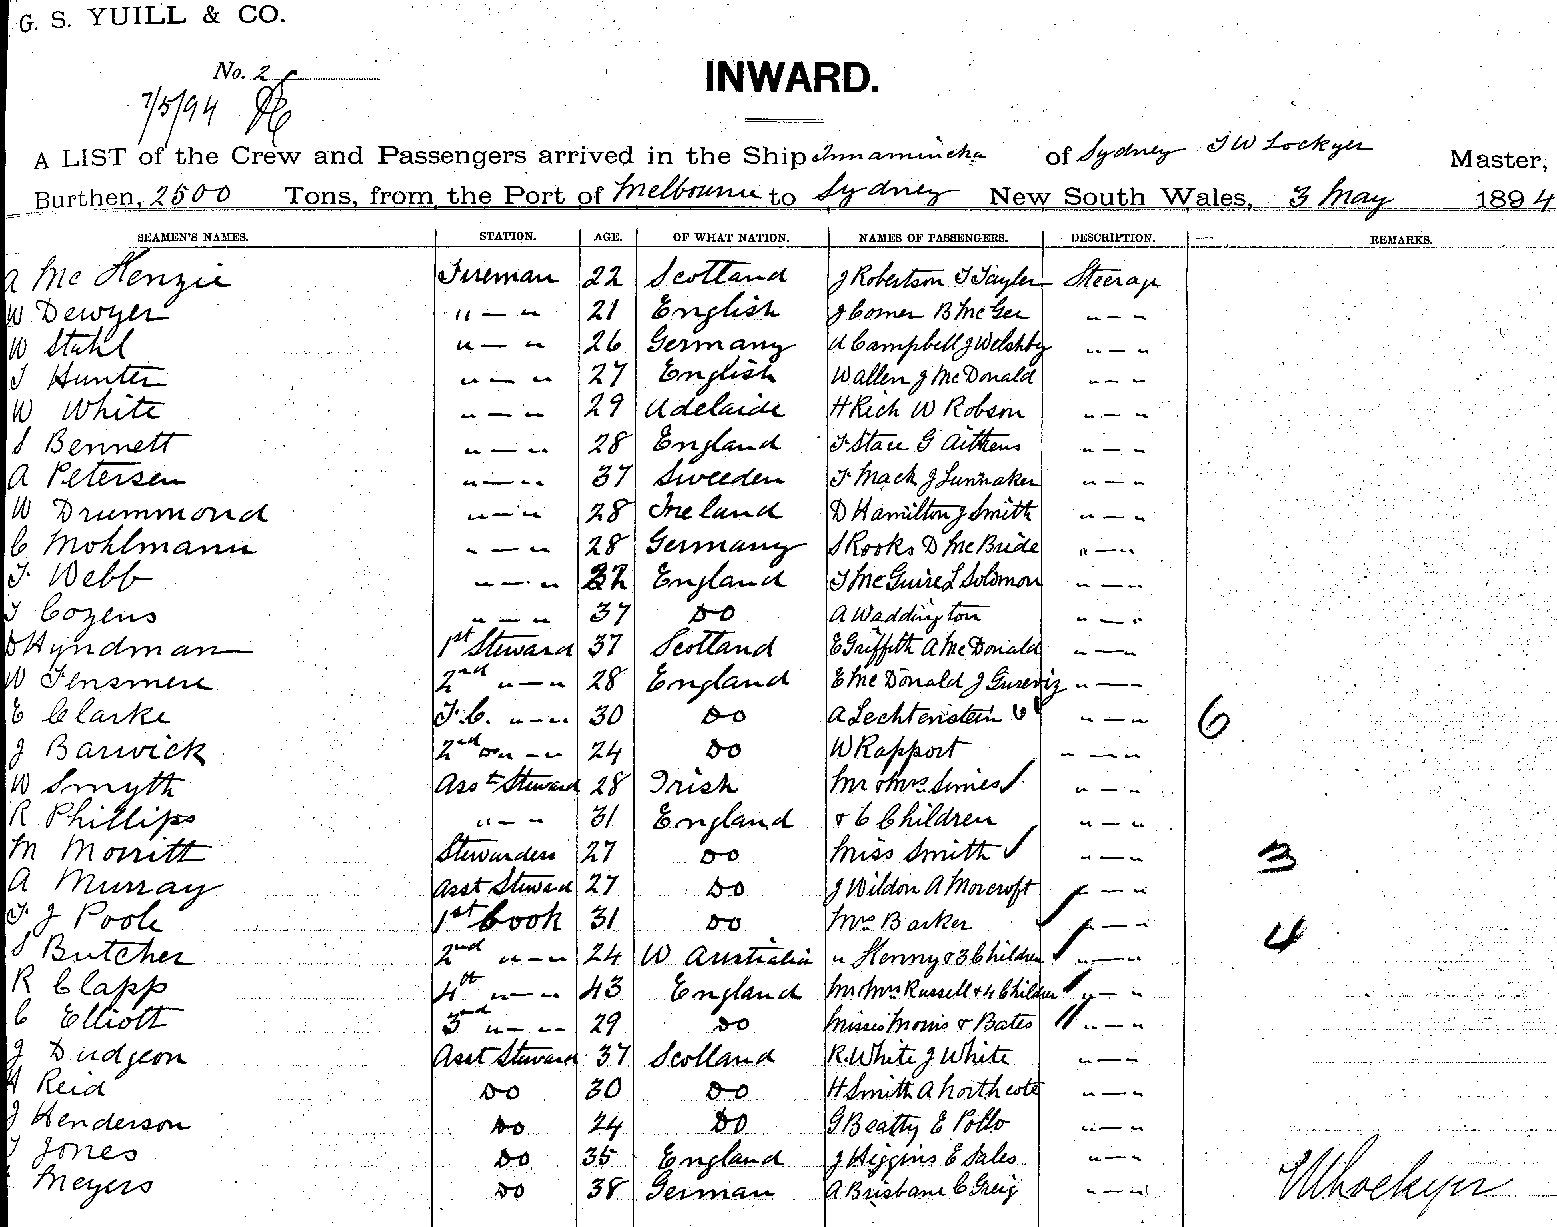 G. S. YUILL & CO.
No. 2
7/5/94
INWARD.
A LIST of the Crew and Passengers arrived in the Ship Innamincka of Sydney T W Lockyer Master,
Burthen, 2500 Tons, from the Port of Melbourne to Sydney New South Wales, 3 May 1894
SEAMEN'S NAMES. STATION. AGE. OF WHAT NATION. NAMES OF PASSENGERS. DESCRIPTION. REMARKS.
A McKenzie Fireman 22 Scotland J Robertson T Tayler Steerage
W Dewyer " — " 21 English J Comer B McGee " — "
W Stahl " — " 26 Germany A Campbell J Welshby " — "
T Hunter " — " 27 English W allen J McDonald " — "
W White " — " 29 Adelaide H Rich W Robson " — "
S Bennett " — " 28 England F Stace G Aitkens " — "
A Petersen " — " 37 Sweeden F Mack J " — "
W Drummond " — " 28 Ireland D Hamilton J Smith " — "
C Mohlmann " — " 28 Germany S Rooks D McBride " — "
F Webb " — " 32 England T McGuire L Solomon " — "
T Cozens " — " 37 Do A Waddington " — "
D Hyndman 1st Steward 37 Scotland E Griffith A McDonald " — "
W Tensmere 2nd " — " 28 England E McDonald J " — "
E Clarke F.C. " — " 30 Do A Lechtenstein 6 " — " 6
J Barwick 2nd Do " — " 24 Do W Rapport " — "
W Smyth Asst Steward 28 Irish Mr & Mrs Simes " — "
R Phillips " — " 31 England & 6 Children " — "
M Morritt Stewardess 27 Do Miss Smith " — " 3
A Murray Asst Steward 27 Do J Wildon A Morcroft " — "
F J Poole 1st Cook 31 Do Mrs Barker " — " 4
S Butcher 2nd " — " 24 W Australia " Henny & 3 Children " — "
R Clapp 4th " — " 43 England Mr Mrs Russell & 4 Children " — "
C Elliott 3rd " — " 29 Do Misses Morris & Bates " — "
J Dudgeon Asst Steward 37 Scotland R White J White " — "
Reid Do 30 Do H Smith A Northcote " — "
J Henderson Do 24 Do G Beatty E Pollo " — "
T Jones Do 35 England J Higgins E Sales " — "
Meyers Do 38 German A Brisbane C Greig " — "
TW Lockyer